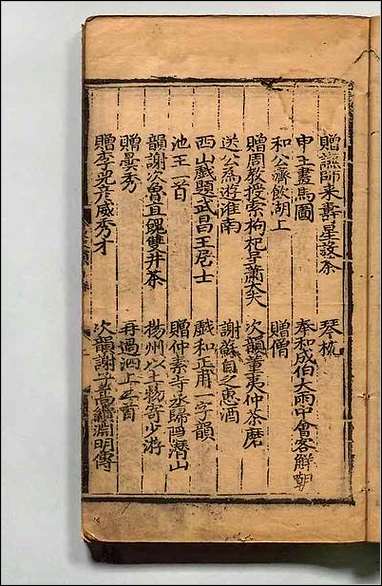 贈謙師來壽星設茶　琴枕
申王畫馬圖　奉和成伯大雨中會客解嘲
和公濟飲湖上　贈僧
贈周教授索枸杞呈蕭大夫　次韻董夷仲茶磨
送公為遊淮南　謝蘇自之惠酒
西山戲題武昌王居士　戲和正甫一字韻
池王一首　贈仲素寺丞歸隱潛山
韻謝次魯直餽雙井茶　揚州以土物寄少游
贈曇秀　再過泗上二首
贈李兕彥威秀才　次韻謝子高讀淵明傳